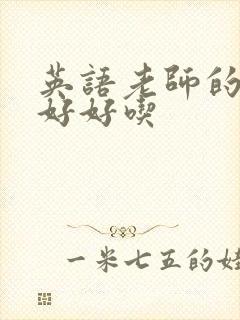 英語老師的
好好喫
一米七五的娃